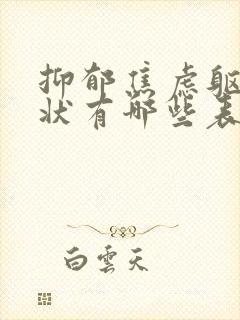 抑郁焦虑躯
状有哪些表
白雲天